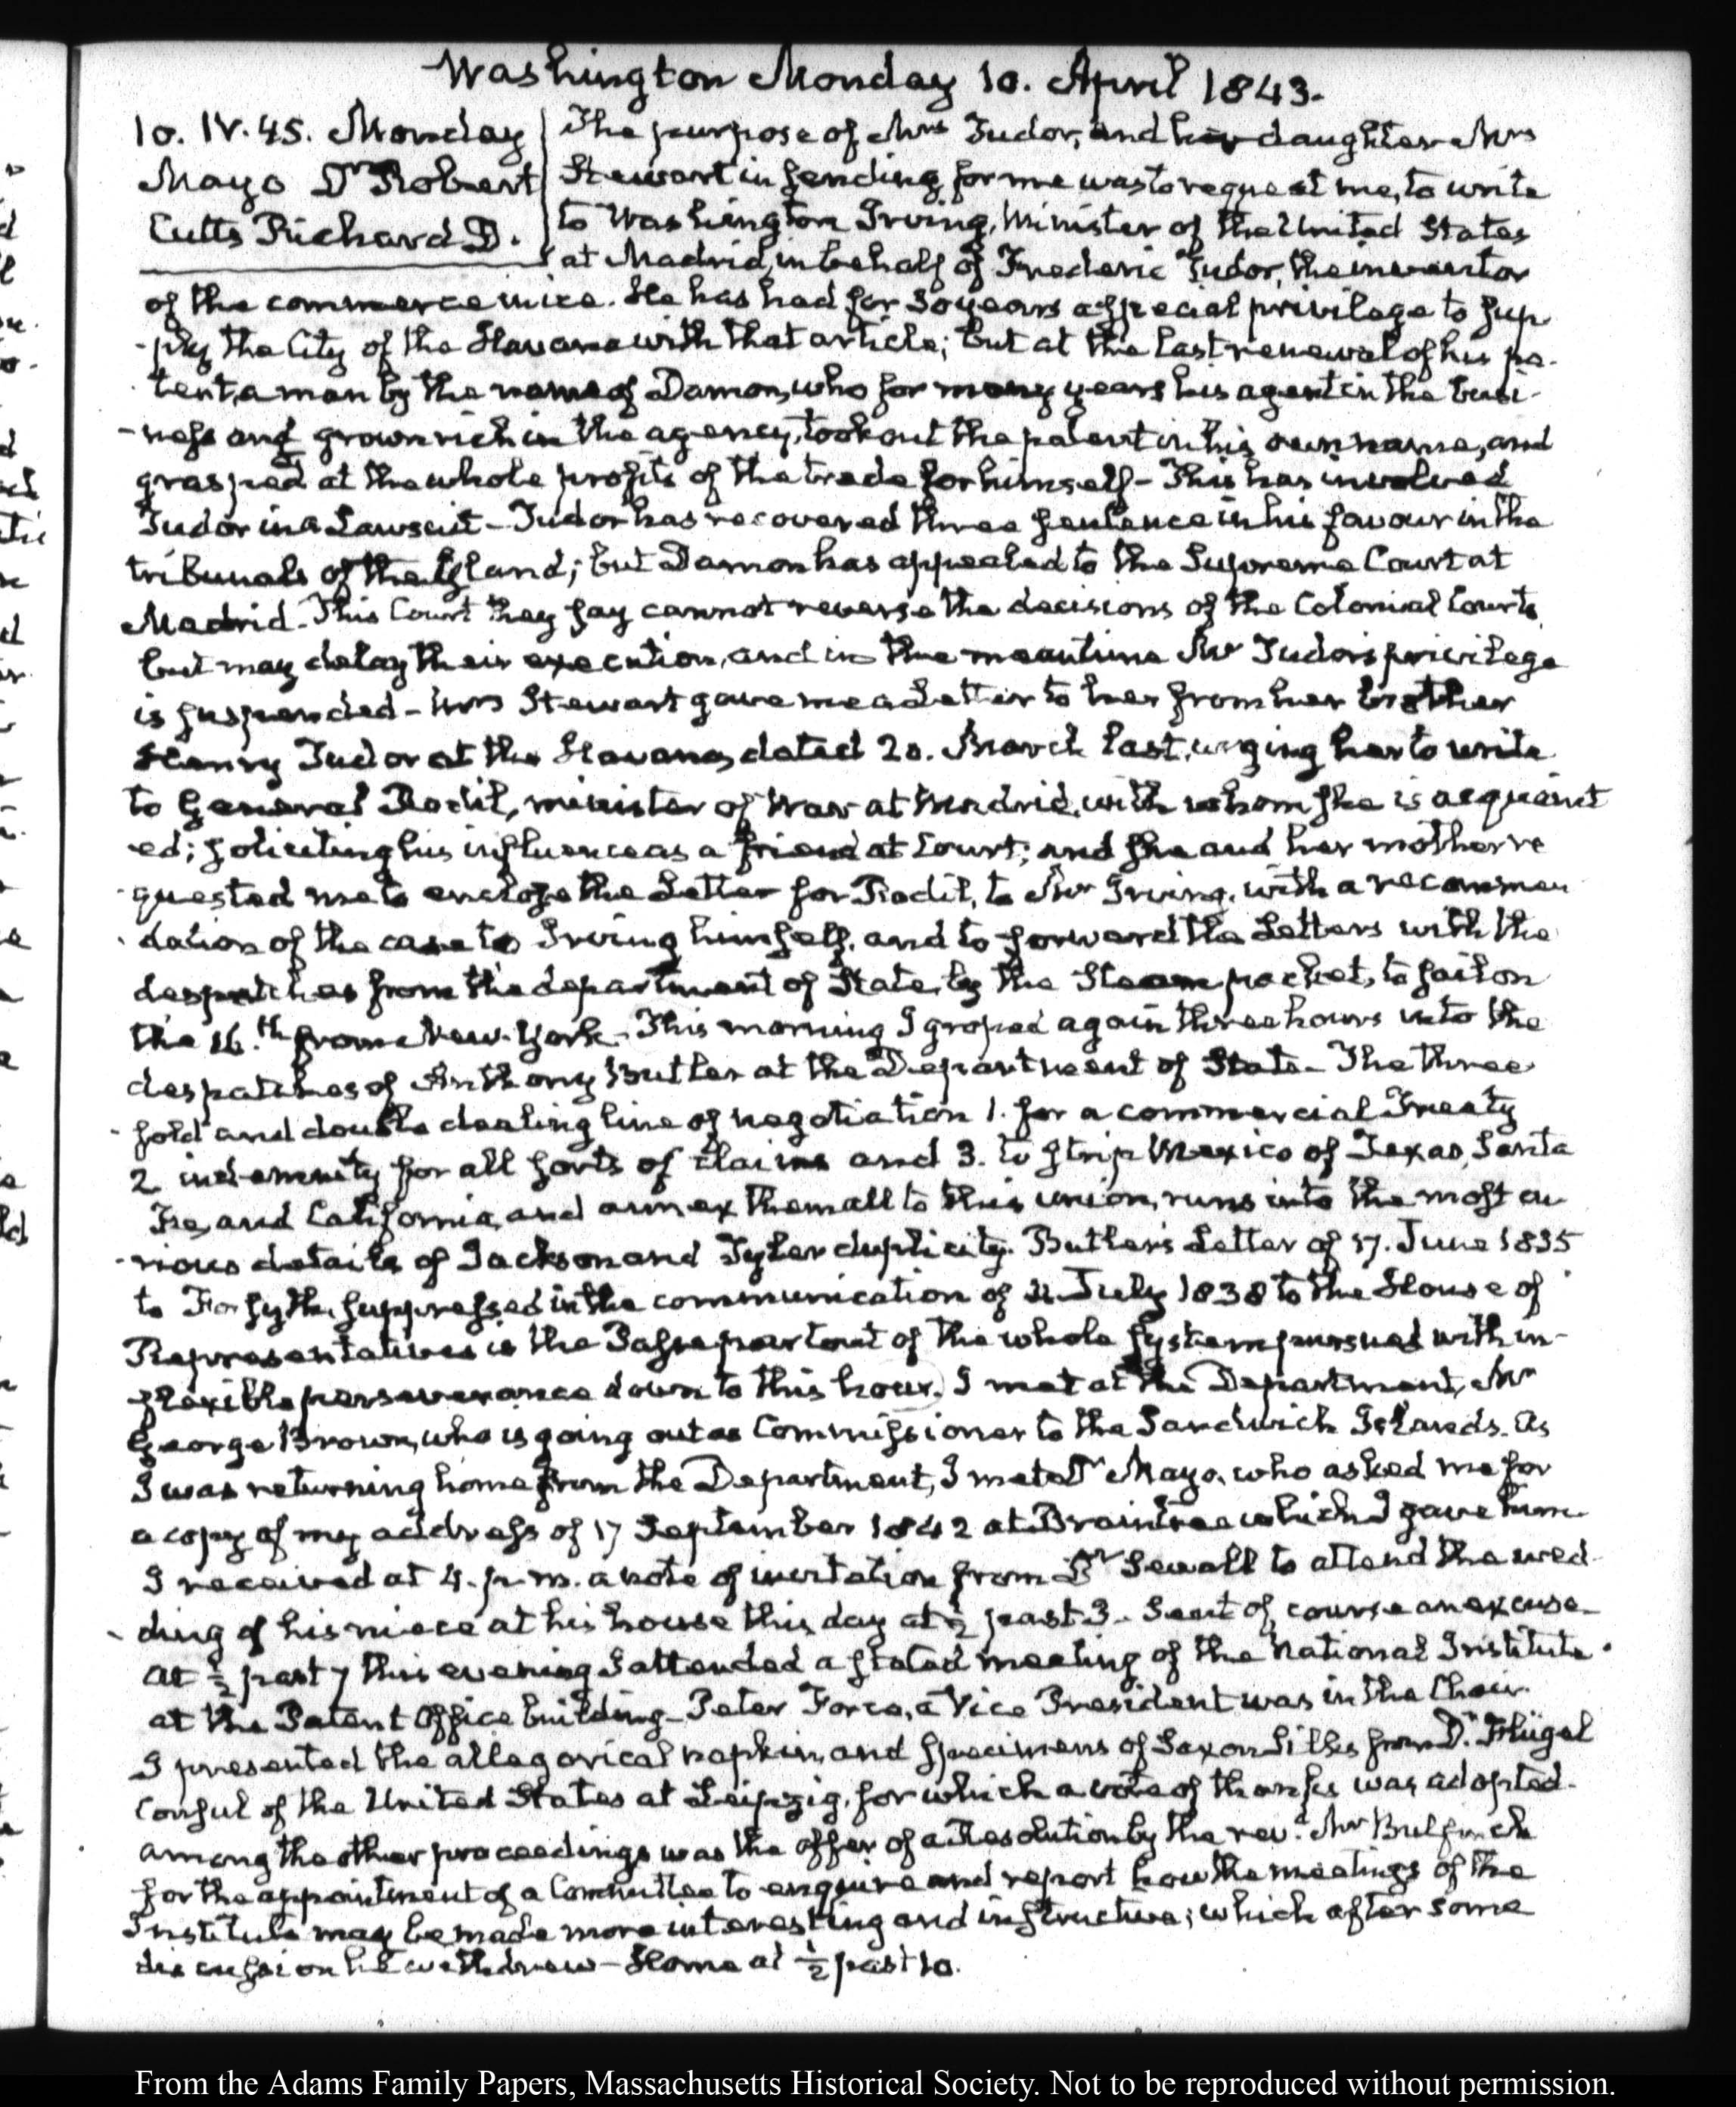 Washington Monday 10. April 1843.
10. IV. 45. Monday
Mayo Dr Robert
Cutts Richard D.
The purpose of Mrs Tudor, and her daughter Mrs
Stewart in sending for me was to request me, to write
to Washington Irving, Minister of the United States
at Madrid, in behalf of Frederic Tudor, the inventor
of the commerce in ice. He has had for 30 years a special privilege to sup
-ply the City of the Havana with that article; but at the last renewal of his pa-
tent, a man by the name of Damon, who for many years his agent in the busi-
-ness and grown rich in the agency, took out the patent in his own name, and
grasped at the whole profits of the trade for himself - This has involved
Tudor in a Lawsuit - Tudor has recovered three sentence in his favour in the
tribunals of the Island; but Damon has appealed to the Supreme Court at
Madrid - This Court they say cannot reverse the decisions of the Colonial Courts
but may delay their execution, and in the meantime Mr Tudor's privilege
is suspended - Mrs Stewart gave me a Letter to her from her brother
Henry Tudor at the Havana, dated 20. March last, urging her to write
to General Rodil, minister of War at Madrid, with whom she is acquaint
ed; soliciting his influence as a friend at Court; and she and her mother re
quested me to enclose the Letter for Rodil, to Mr Irving, with a recommen
dation of the case to Irving himself, and to forward the Letters with the
despatches from the department of State, by the Steam packet, to sail on
the 16.th from New-York - This morning I groped again three hours into the
despatches of Anthony Butler at the Department of State - The three
fold and double dealing line of negotiation 1. for a commercial Treaty
2 indemnity for all sorts of claims and 3. to strip Mexico of Texas, Santa
Fe, and California, and annex them all to this union, runs into the most cu
-rious details of Jackson and Tyler duplicity. Butler's Letter of 17. June 1835
to Forsyth, suppressed in the communication of July 1838 to the House of
Representatives is the Passepartout of the whole system pursued with in-
flexible perseverance down to this hour. I met at the Department, Mr
George Brown, who is going out as Commissioner to the Sandwich Islands. As
I was returning home from the Department, I met Dr Mayo, who asked me for
a copy of my address of 17 September 1842 at Braintree which I gave him.
I received at 4. p.m. a note of invitation from Dr Sewall to attend the wed-
ding of his niece at his house this day at ½ past 3 - Sent of course an excuse -
At ½ past 7 this evening I attended a stated meeting of the National Institute
at the Patent Office building - Peter Force, a Vice President was in the Chair.
I presented the allegorical napkin, and specimens of Saxon Silks from Dr. Flügel
Consul of the United States at Leipzig, for which a vote of thanks was adopted -
among the other proceedings was the offer of a Resolution by the rev.d Mr Bulfinch
for the appointment of a Committee to enquire and report how the meetings of the
Institute may be made more interesting and instructive; which after some
discussion he withdrew - Home at ½ past 10.
From the Adams Family Papers, Massachusetts Historical Society. Not to be reproduced without permission.